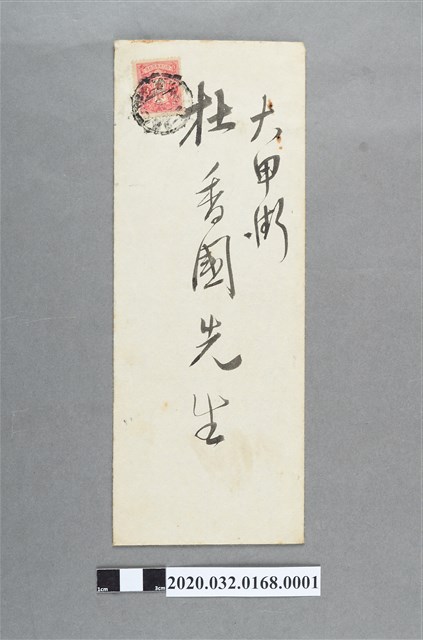 大甲街
杜香國先生
1cm
3cm
2020.032.0168.0001